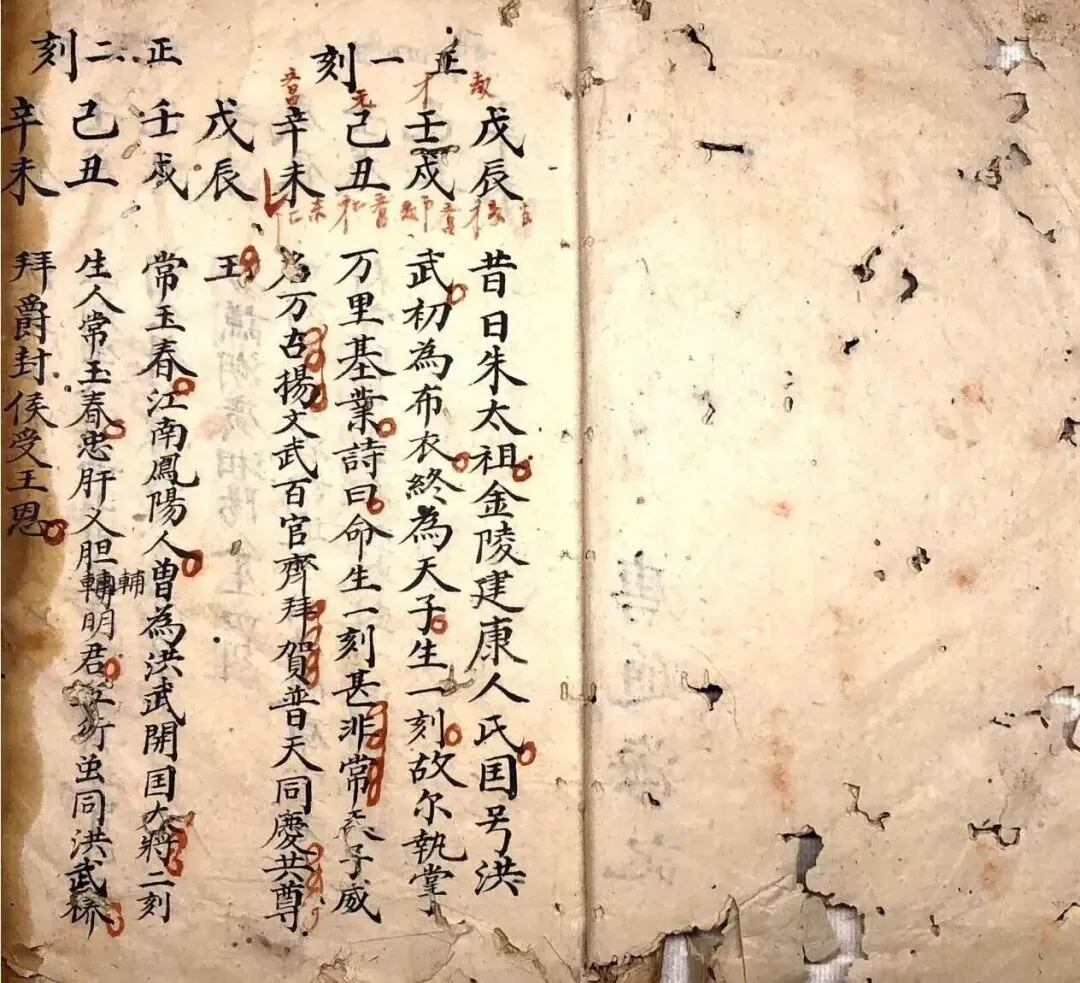 正一刻
戊辰 昔日朱太祖金陵建康人氏囯号洪
壬戌 武初為布衣終為天子生一刻故尔執掌
己丑 万里基業詩曰命生一刻甚非常天子威
辛未 名万古揚文武百官齊拜賀普天同慶共尊
戊辰 王
正二刻
壬戌 常玉春江南鳳陽人曾為洪武開囯大將二刻
己丑 生人常玉春忠肝义胆輔明君 同洪武
辛未 拜爵封侯受王恩
才
元